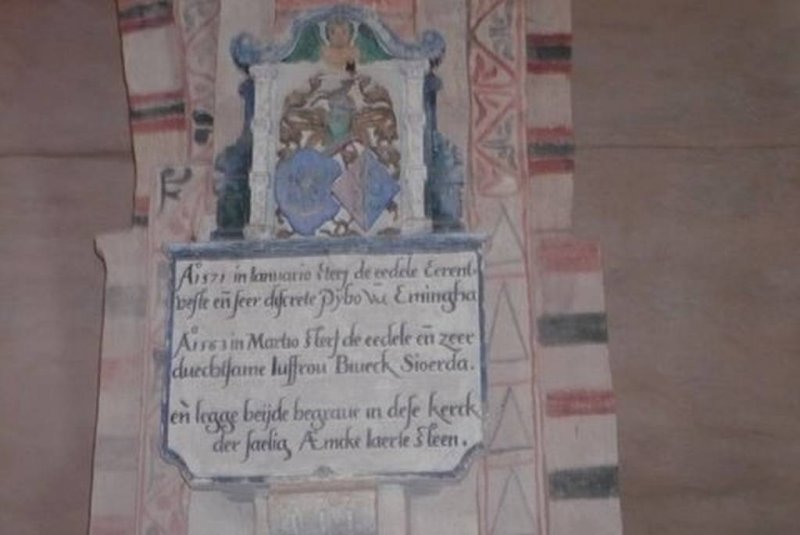 Ao 1571 in Ianuario sterf de eedele Eerent-
veste en̄ seer discrete Pijbo Vā Emingha
Ao 1563 in Martio sterf de eedele en̄ zeer
duechtsame Iuffrou Biueck Sioerda.
en̄ legge beijde begraue in dese kerck
der saelig Æmcke Iaerle steen.